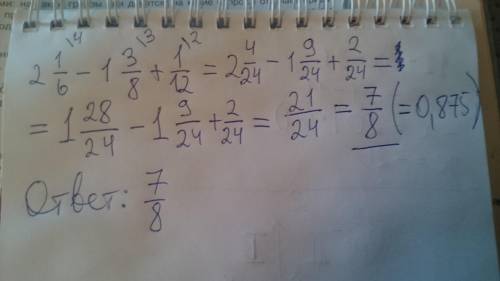 2 1/6 \4 - 1 3/8 \3 + 1/12 \2 = 2 4/24 - 1 9/24 + 2/24 =
= 1 28/24 - 1 9/24 + 2/24 = 21/24 = 7/8 (= 0,875)
Ответ: 7/8